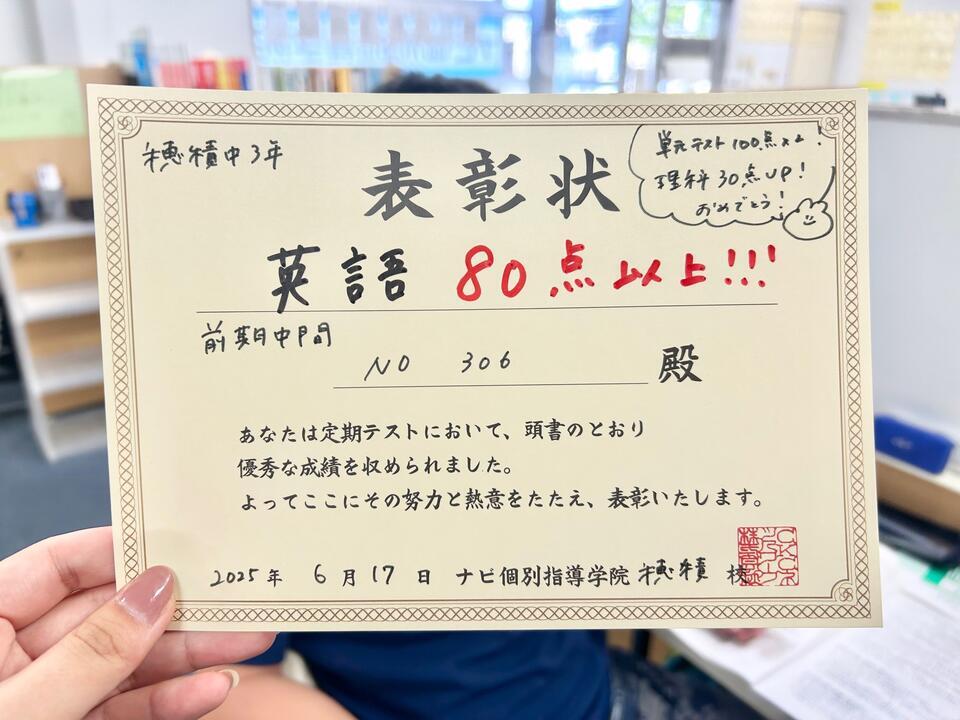 穂積中3年
表彰状
単元テスト100点×2!
理科30点UP!
おめでとう!
英語 80点以上!!!
前期中間
NO 306 殿
あなたは定期テストにおいて、頭書のとおり
優秀な成績を収められました。
よってここにその努力と熱意をたたえ、表彰いたします。
2025年 6月17日 ナビ個別指導学院 穂積 校